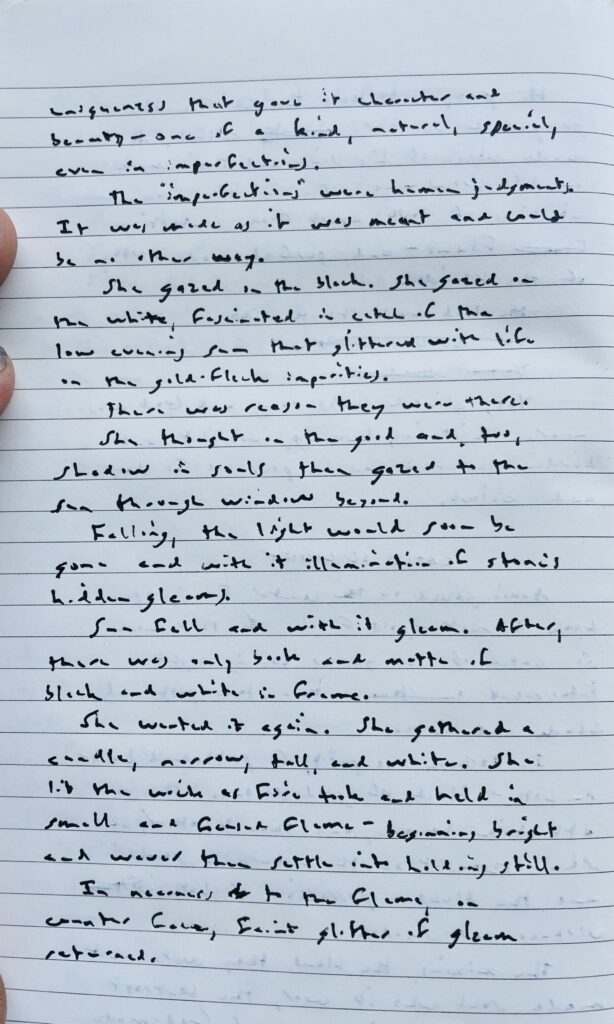 uniqueness that gave it character and
beauty - one of a kind, natural, special,
even in imperfections.
The "imperfections" were human judgments.
It was made as it was meant and could
be no other way.
She gazed on the black. She gazed on
the white, fascinated in catch of the
low evening sun that glittered with life
on the gold-fleck impurities.
There was reason they were there.
She thought on the good and, too,
shadow in souls then gazed to the
sun through window beyond.
Falling, the light would soon be
gone and with it illumination of stone's
hidden gleams.
Sun fell and with it gleam. After,
there was only book and matte of
black and white in frame.
She wanted it again. She gathered a
candle, narrow, tall, and white. She
lit the wick as fire took and held in
small and flame - beginning bright
and waver then settle into holding still.
In nearness to the flame, on
counter face, faint glitter of gleam
returned.